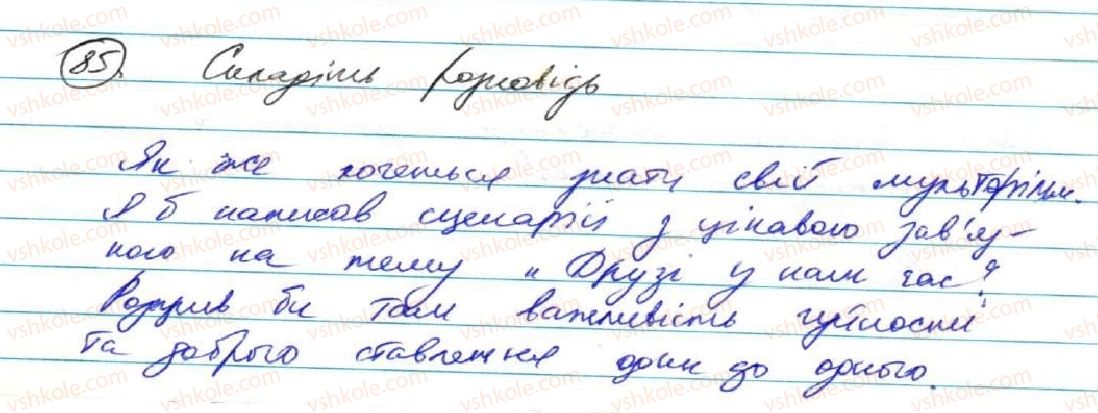 85. Складіть розповідь
Як же хочеться знати свій мультфільм.
Я б написав сценарій з цікавою зав'яз-
кою на тему „Друзі у наш час".
Розкрив би там важливість чуйности
та доброго ставлення один до одного.